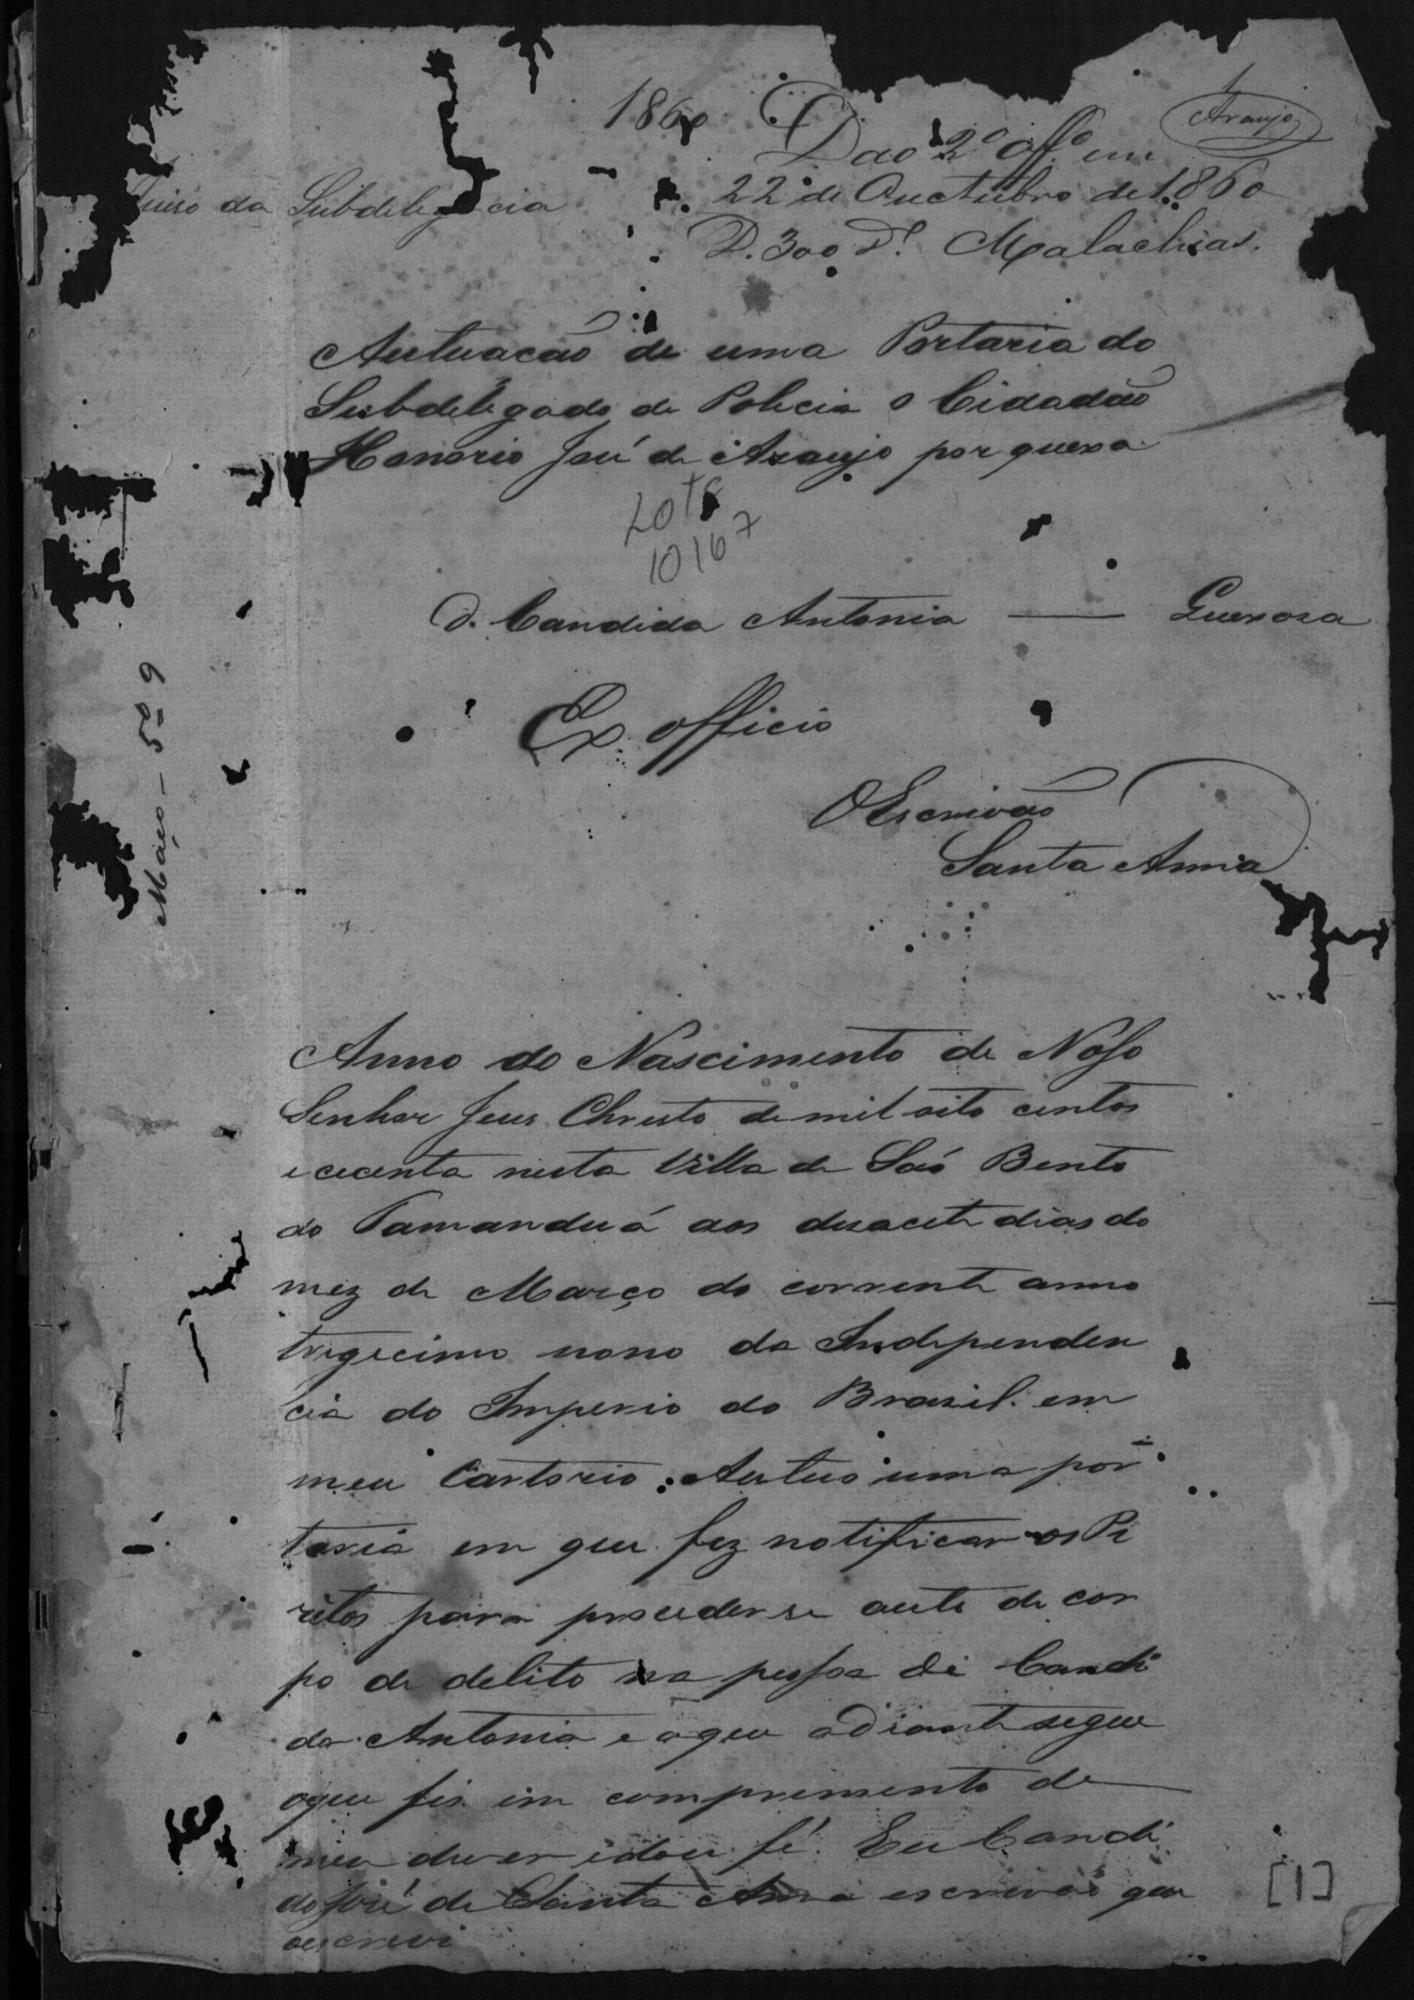 1860
Araujo
D ao 2º offº em
22 de Ouctubro de 1860
D. 300 Dr. Malachias.
Juiso da Subdelegacia
Autuacão de uma Portaria do
Subdelegado de Policia o Cidadão
Honorio José de Araujo por quexa
Lote
10167
D. Candida Antonia — Quexosa
Ex officio
O Escrivão
Santa Anna
Maço - 5º 9
Anno do Nascimento de Nosso
Senhor Jesus Christo de mil oito centos
e cecenta nesta Villa de São Bento
do Tamanduá aos desacete dias do
mez de Março do corrente anno
trigecimo nono da Independen
cia do Imperio do Brasil. em
meu Cartorio Autuo uma por
taria em que fez notificar os Pi
ritos para proceder se auto de cor
po de delito na pessoa de Candi
da Antonia e o que adiante segue
o que fis em comprimento de
meu dever e dou fé. Eu Candi
do José de Santa Anna escrivão que
escrevi
[1]